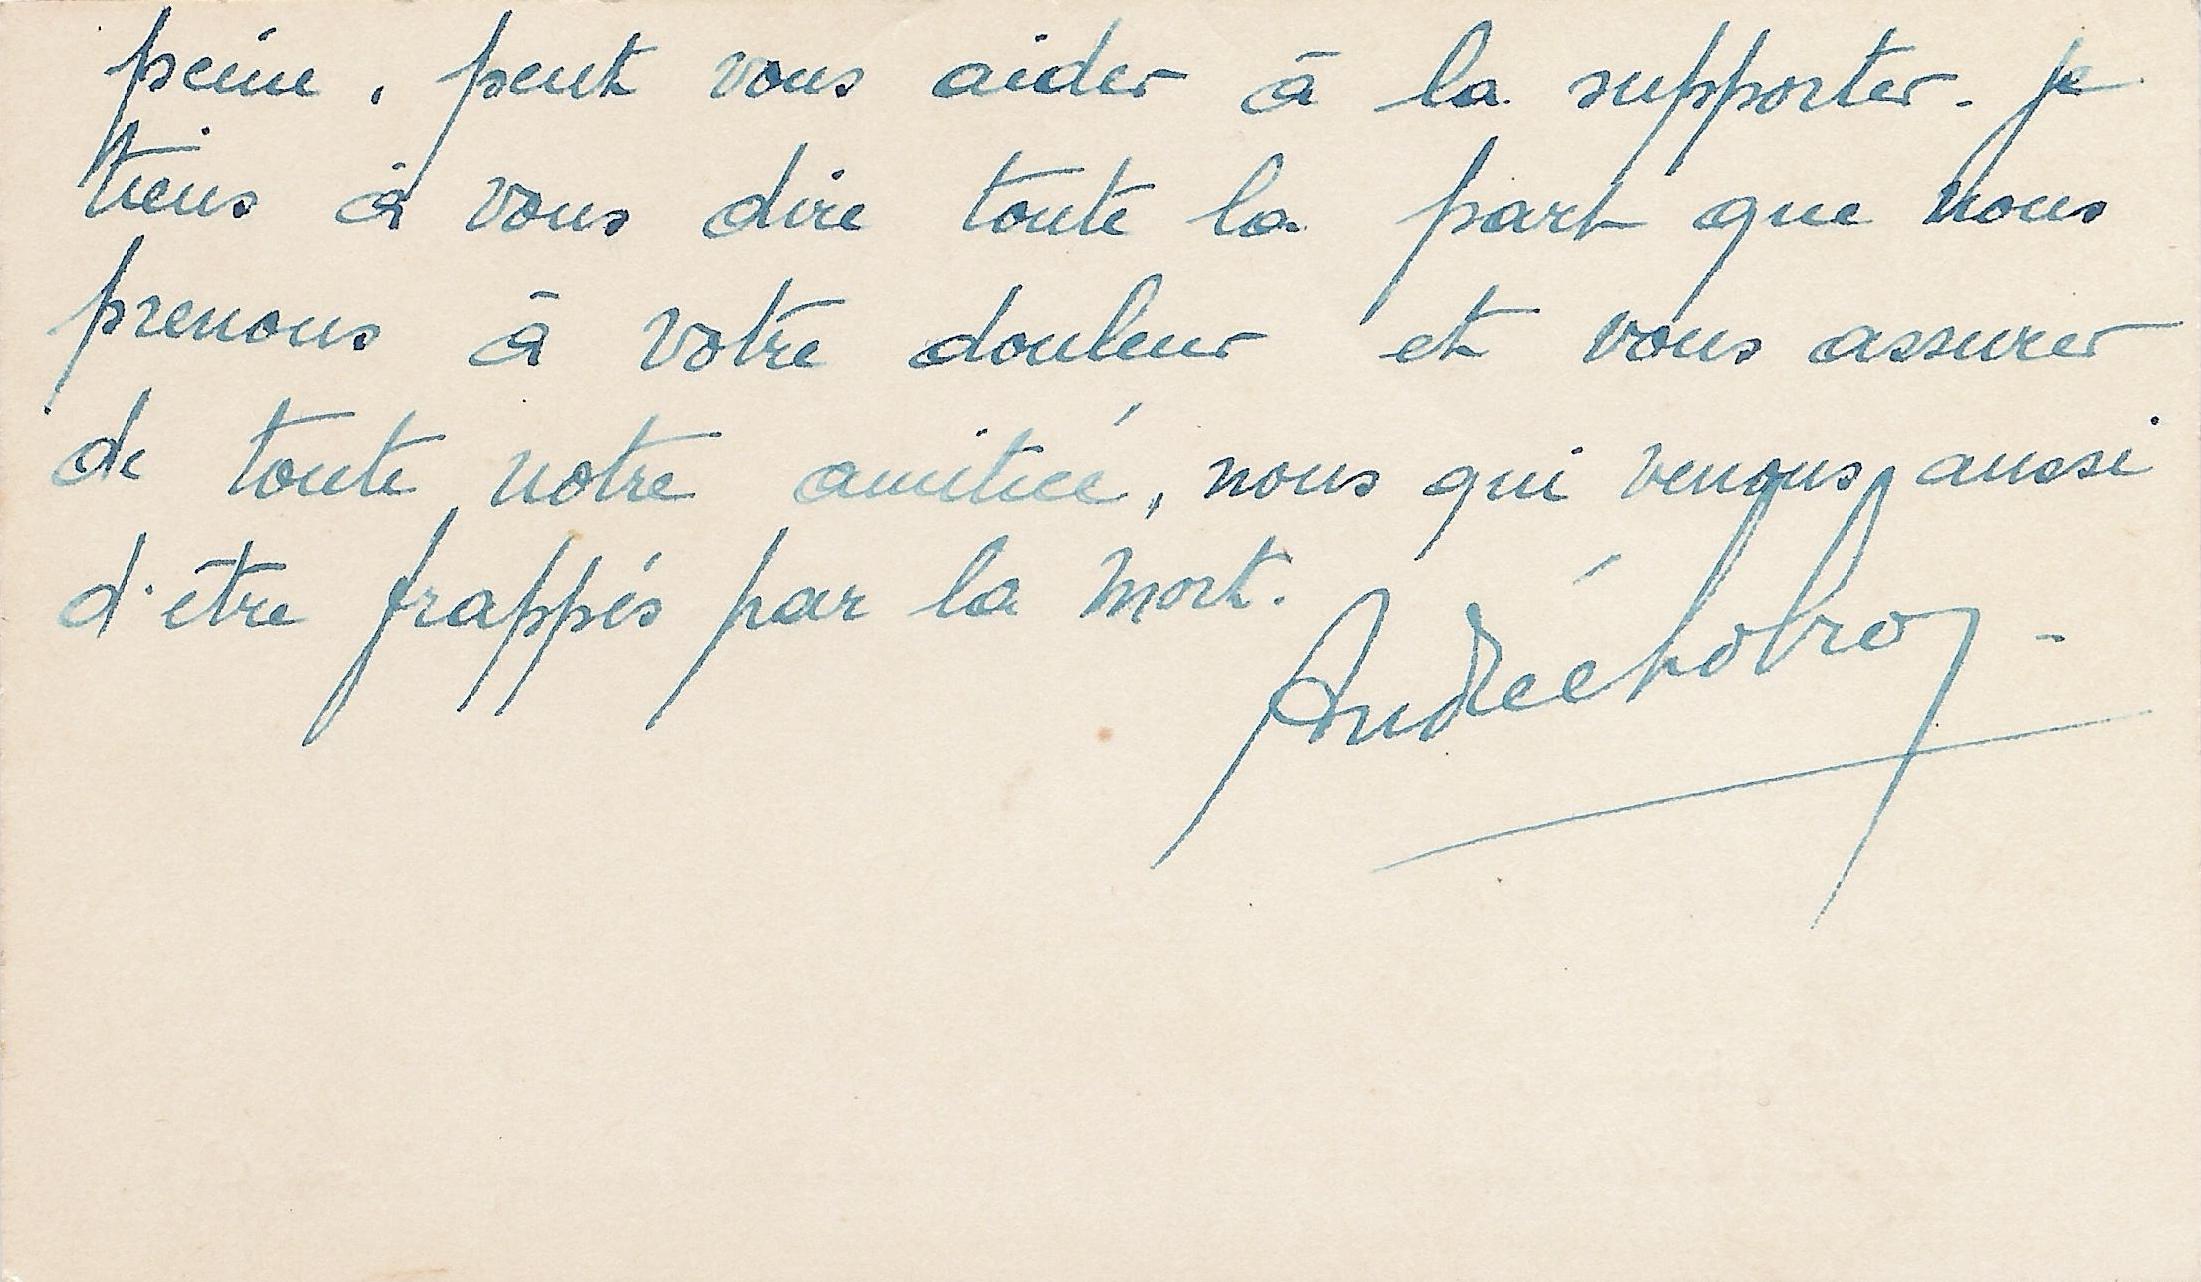 peine, peut vous aider à la supporter. Je
tiens à vous dire toute la part que nous
prenons à votre douleur et vous assurer
de toute notre amitié, nous qui venons aussi
d'être frappés par la mort.
André